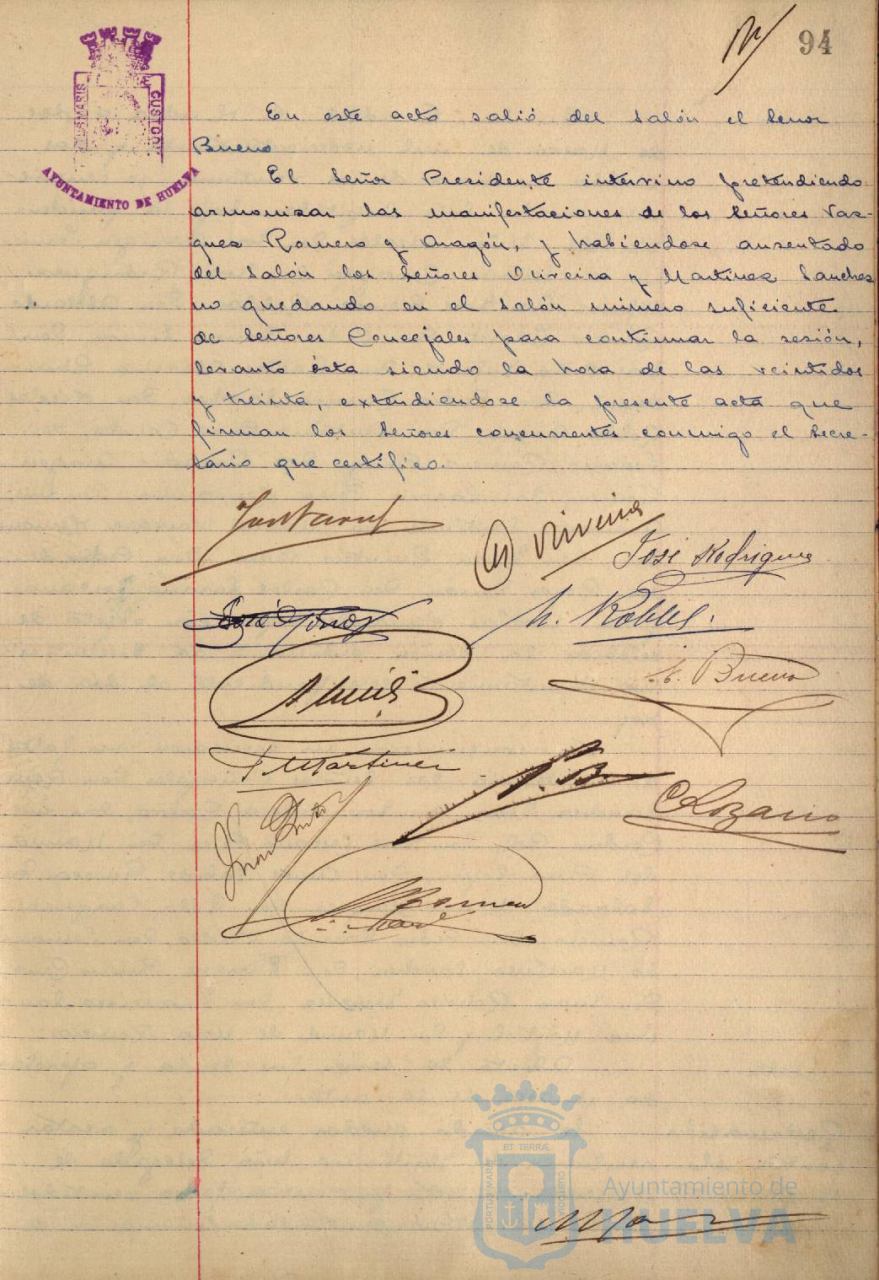 94
PORTUS MARIS
ET TERRÆ
CUSTODIA
AYUNTAMIENTO DE HUELVA
En este acto salió del salón el Señor
Bueno
El Señor Presidente intervino pretendiendo
armonizar las manifestaciones de los Señores Vaz-
quez Romero y Aragón, y habiendose ausentado
del salón los Señores Oliveira y Martinez Sanchez
no quedando en el salón número suficiente
de Señores Concejales para continuar la sesión,
levantó ésta siendo la hora de las veintidos
y treinta, extendiendose la presente acta que
firman los Señores concurrentes conmigo el Secre-
tario que certifico.
Oliveira
José Rodriguez
M. Robles.
Bueno
Martinez
P. B.
C Lozano
ET TERRÆ
PORTUS MARIS
CUSTODIO
Ayuntamiento de
HUELVA